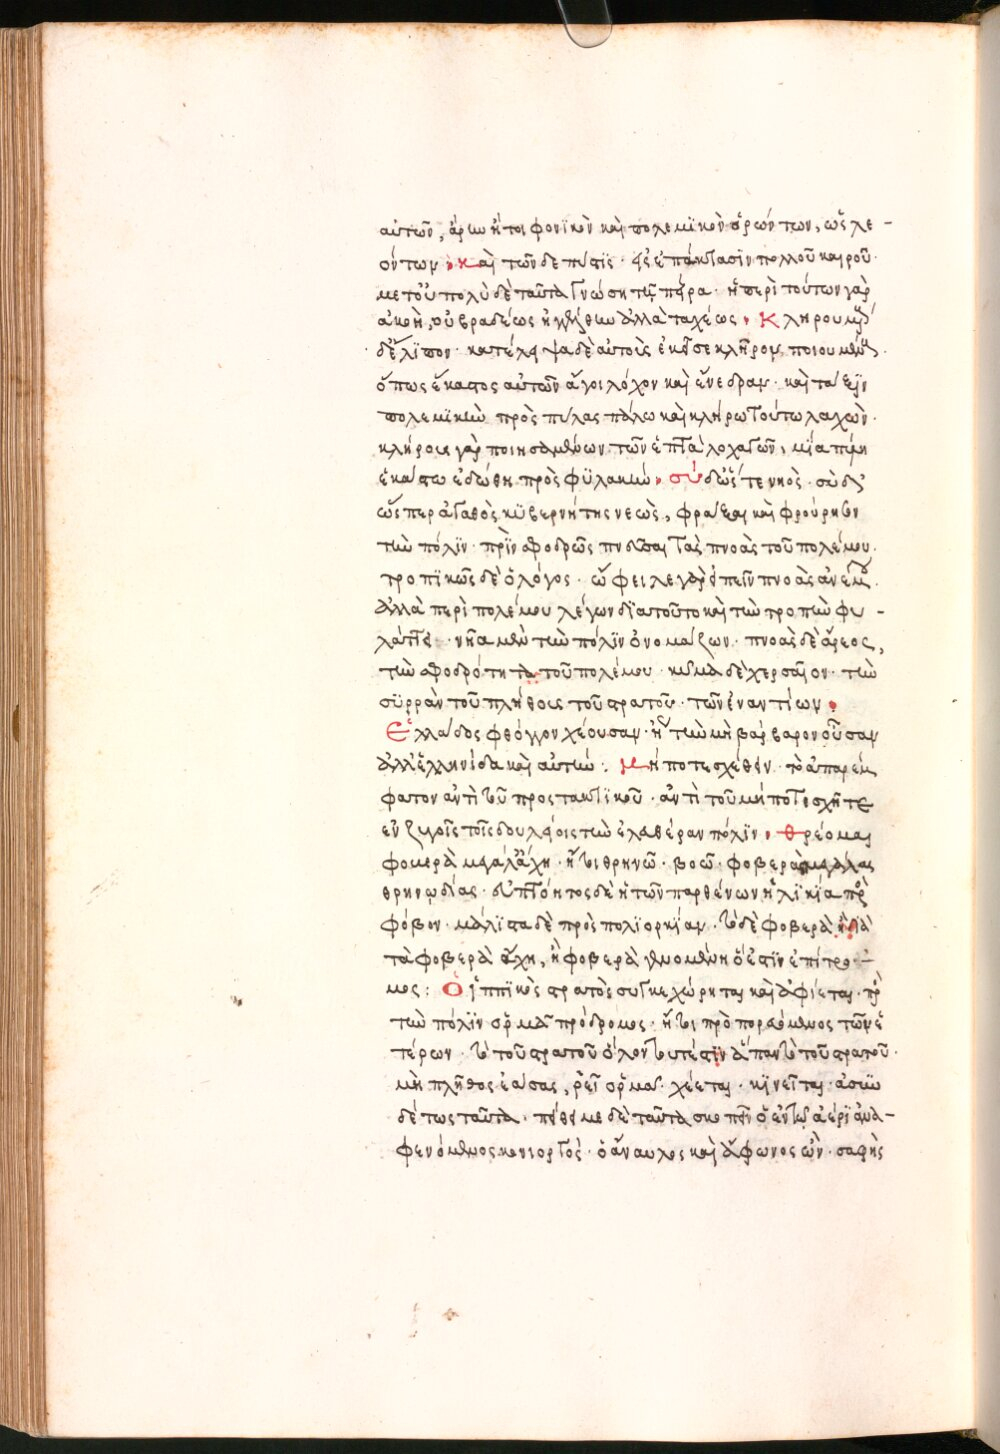 αὐτῶν, ἄρεω ἤτοι φονικὸν καὶ πολεμϊκὸν ὁρώντων, ὡς λε-
όντων· καὶ τῶν δε πύστις· ἐπέκτασϊν πολλοῦ καιροῦ·
μετ' οὐ πολὺ δὲ ταῦτα γνώσῃ τῇ πείρα· ἡ περὶ τούτων γὰρ
ἀκοὴ, οὐ βραδέως ἠγγέλθη ἀλλὰ ταχέως· κληρουμένους
δ' ἔλϊπον· κατέλειψα δὲ αὐτοὺς ἐκεῖσε κλῆρον ποιουμένους·
ὅπως ἕκαστος αὐτῶν ἄγοι λόχον καὶ ἐνέδραν· καὶ τάξϊν
πολεμϊκὴν πρὸς πύλας πάλω καὶ κλήρω τούτω λαχών·
κλήρους γὰρ ποιησαμένων τῶν ἑπτὰ λοχαγῶν, μία πύλη
ἑκάστω ἐδόθη πρὸς φϋλακὴν· σὺ δ' ὥστε νηὸς· σὺ δ'
ὥσπερ ἀγαθὸς κϋβερνήτης νεὼς, φράξαι καὶ φρούρησον
τὴν πόλϊν· πρὶν σφοδρῶς πνεῦσαι τὰς πνοὰς τοῦ πολέμου·
τροπϊκῶς δὲ ὁ λόγος· ὤφειλε γὰρ εἰπεῖν πνοὰς ἀνέμου·
ἀλλὰ περὶ πολέμου λέγων διὰ τοῦτο καὶ τὴν τροπὴν φυ-
λάττει· νῆα μὲν τὴν πόλϊν ὀνομάζων· πνοὰς δὲ ἄρεος,
τὴν σφοδρότητα τοῦ πολέμου· κῦμα δὲ χερσαῖον· τὴν
σϋρροὴν τοῦ πλήθους τοῦ στρατοῦ· τῶν ἐναντίων·
Ἑλλάδος φθόγγον χέουσαν· ἤγουν τὴν μὴ βάρβαρον οὖσαν
ἀλλ' ἑλληνίδα καὶ αὐτὴν: μήποτε σχέθειν· τὸ ἀπαρέμ
φατον ἀντὶ τοῦ προστακτϊκοῦ· ἀντὶ τοῦ μήποτε σχῆτε
ἐν ζυγοῖς τοῖς δουλείοις τὴν ἐλευθέραν πόλϊν· θρέομαι
φοβερὰ μεγάλ' ἄχη· ἤτοι θρηνῶ· βοῶ· φοβερὰς μεγάλας
θρηνωδίας· εὐπτόητος δὲ ἡ τῶν παρθένων ἡλϊκία πρὸς
φόβον· μάλϊστα δὲ πρὸς πολϊορκίαν· τὸ δὲ φοβερὰ ἢ διὰ
τὰ φοβερὰ ἄχη, ἢ φοβερὰ γενομένη ὅ ἐστϊν ἐπίτρο-
μος: Ὁ ἱππϊκὸς στρατὸς συγκεχώρηται καὶ ἀφίεται· πρὸς
τὴν πόλϊν ὁρμᾶ πρόδρομος· ἤτοι προπορευόμενος τῶν ἑ
τέρων· τὸ τοῦ στρατοῦ ὅλον τουτέστϊν ἅπαν τὸ τοῦ στρατοῦ·
μὴ πλῆθος ἐάσας, ῥεῖ ὁρμᾶ· χέεται· κϊνεῖται· ἀσϋν
δέτως ταῦτα· πείθει με δὲ ταῦτα σκοπεῖν ὁ ἐν τῷ ἀέρϊ ἀνα-
φενόμενος κονιορτὸς· ὁ ἄναυλος καὶ ἄφωνος ὢν· σαφὴς